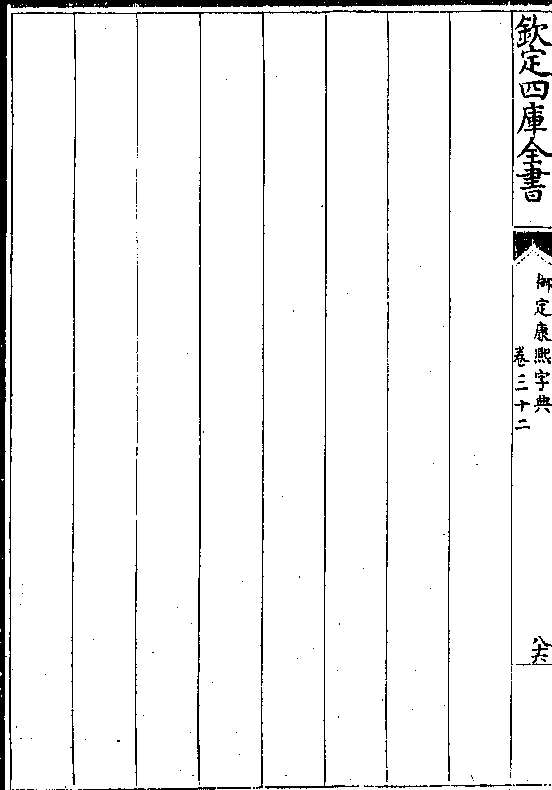 欽定四庫全書
御定康熙字典
卷三十二
八十六